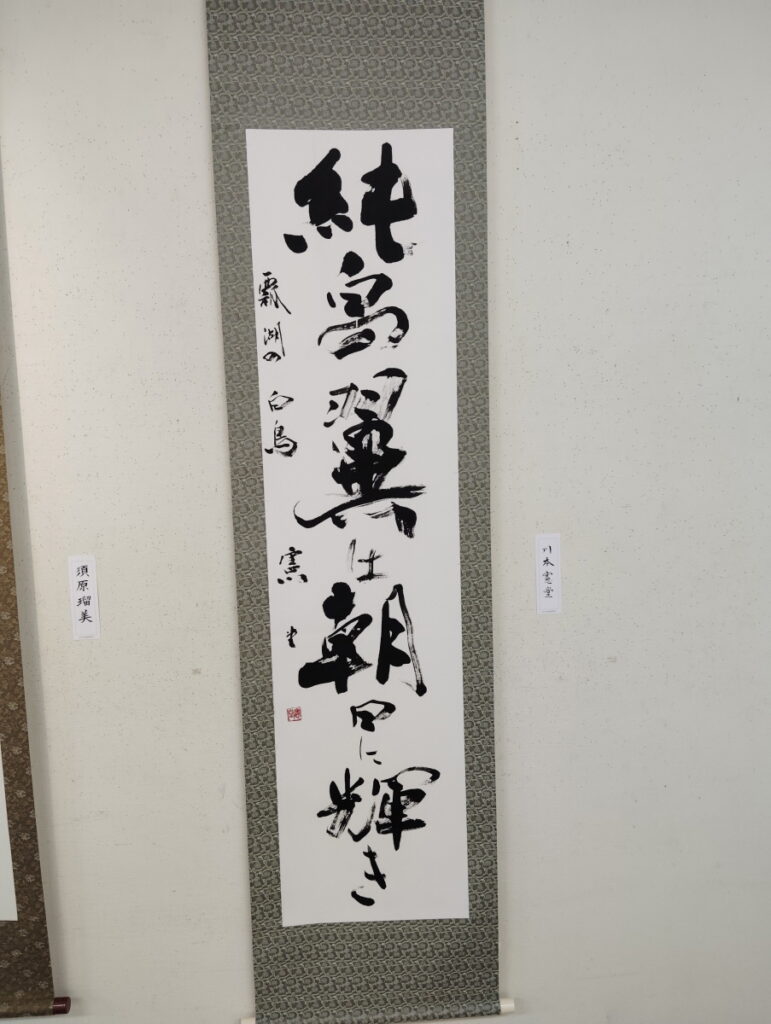 川本憲堂
純白の翼は朝日に輝き
瓢湖の白鳥 憲堂
須原瑠美